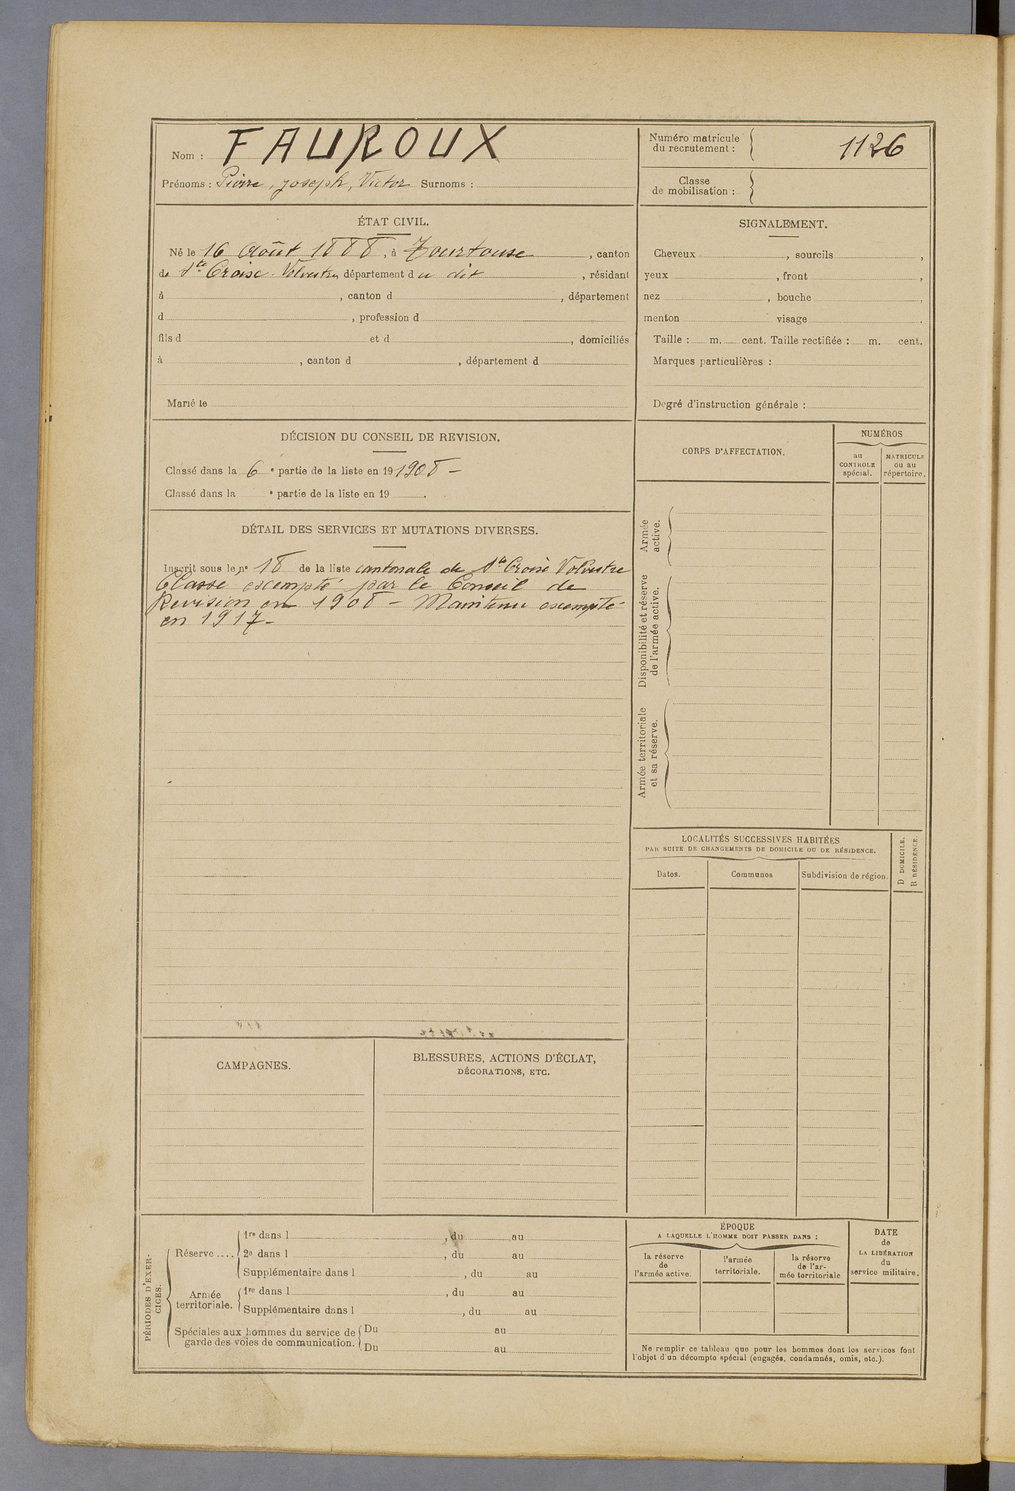 Nom : FAUROUX
Prénoms : Pierre, Joseph, Victor Surnoms :
Numéro matricule du recrutement : 1126
Classe de mobilisation :
ÉTAT CIVIL.
Né le 16 Août 1888, à Tourtouse, canton
de Ste Croise-Volvestre, département du dit, résidant
à , canton d , département
d , profession d
fils d et d , domiciliés
à , canton d , département d
Marié le
SIGNALEMENT.
Cheveux , sourcils ,
yeux , front ,
nez , bouche ,
menton visage .
Taille : m. cent. Taille rectifiée : m. cent.
Marques particulières :
Degré d'instruction générale :
DÉCISION DU CONSEIL DE REVISION.
Classé dans la 6e partie de la liste en 191908 -
Classé dans la e partie de la liste en 19 .
DÉTAIL DES SERVICES ET MUTATIONS DIVERSES.
Inscrit sous le no 18 de la liste cantonale de Ste Croise Volvestre
Classe exempté par le Conseil de
Revision en 1908 - Maintenu exempté
en 1917-
CORPS D'AFFECTATION.
NUMÉROS
au CONTROLE spécial.
MATRICULE ou au répertoire.
Armée active.
Disponibilité et réserve de l'armée active.
Armée territoriale et sa réserve.
LOCALITÉS SUCCESSIVES HABITÉES
PAR SUITE DE CHANGEMENTS DE DOMICILE OU DE RÉSIDENCE.
Dates.
Communes
Subdivision de région.
D DOMICILE.
R RÉSIDENCE.
CAMPAGNES.
BLESSURES, ACTIONS D'ÉCLAT,
DÉCORATIONS, ETC.
PÉRIODES D'EXERCICES.
Réserve .... 1re dans l , du au
2e dans l , du au
Supplémentaire dans l , du au
Armée territoriale. 1re dans l , du au
Supplémentaire dans l , du au
Spéciales aux hommes du service de garde des voies de communication. Du au
Du au
ÉPOQUE
A LAQUELLE L'HOMME DOIT PASSER DANS :
la réserve de l'armée active.
l'armée territoriale.
la réserve de l'armée territoriale
DATE de LA LIBÉRATION du service militaire.
Ne remplir ce tableau que pour les hommes dont les services font
l'objet d'un décompte spécial (engagés, condamnés, omis, etc.).